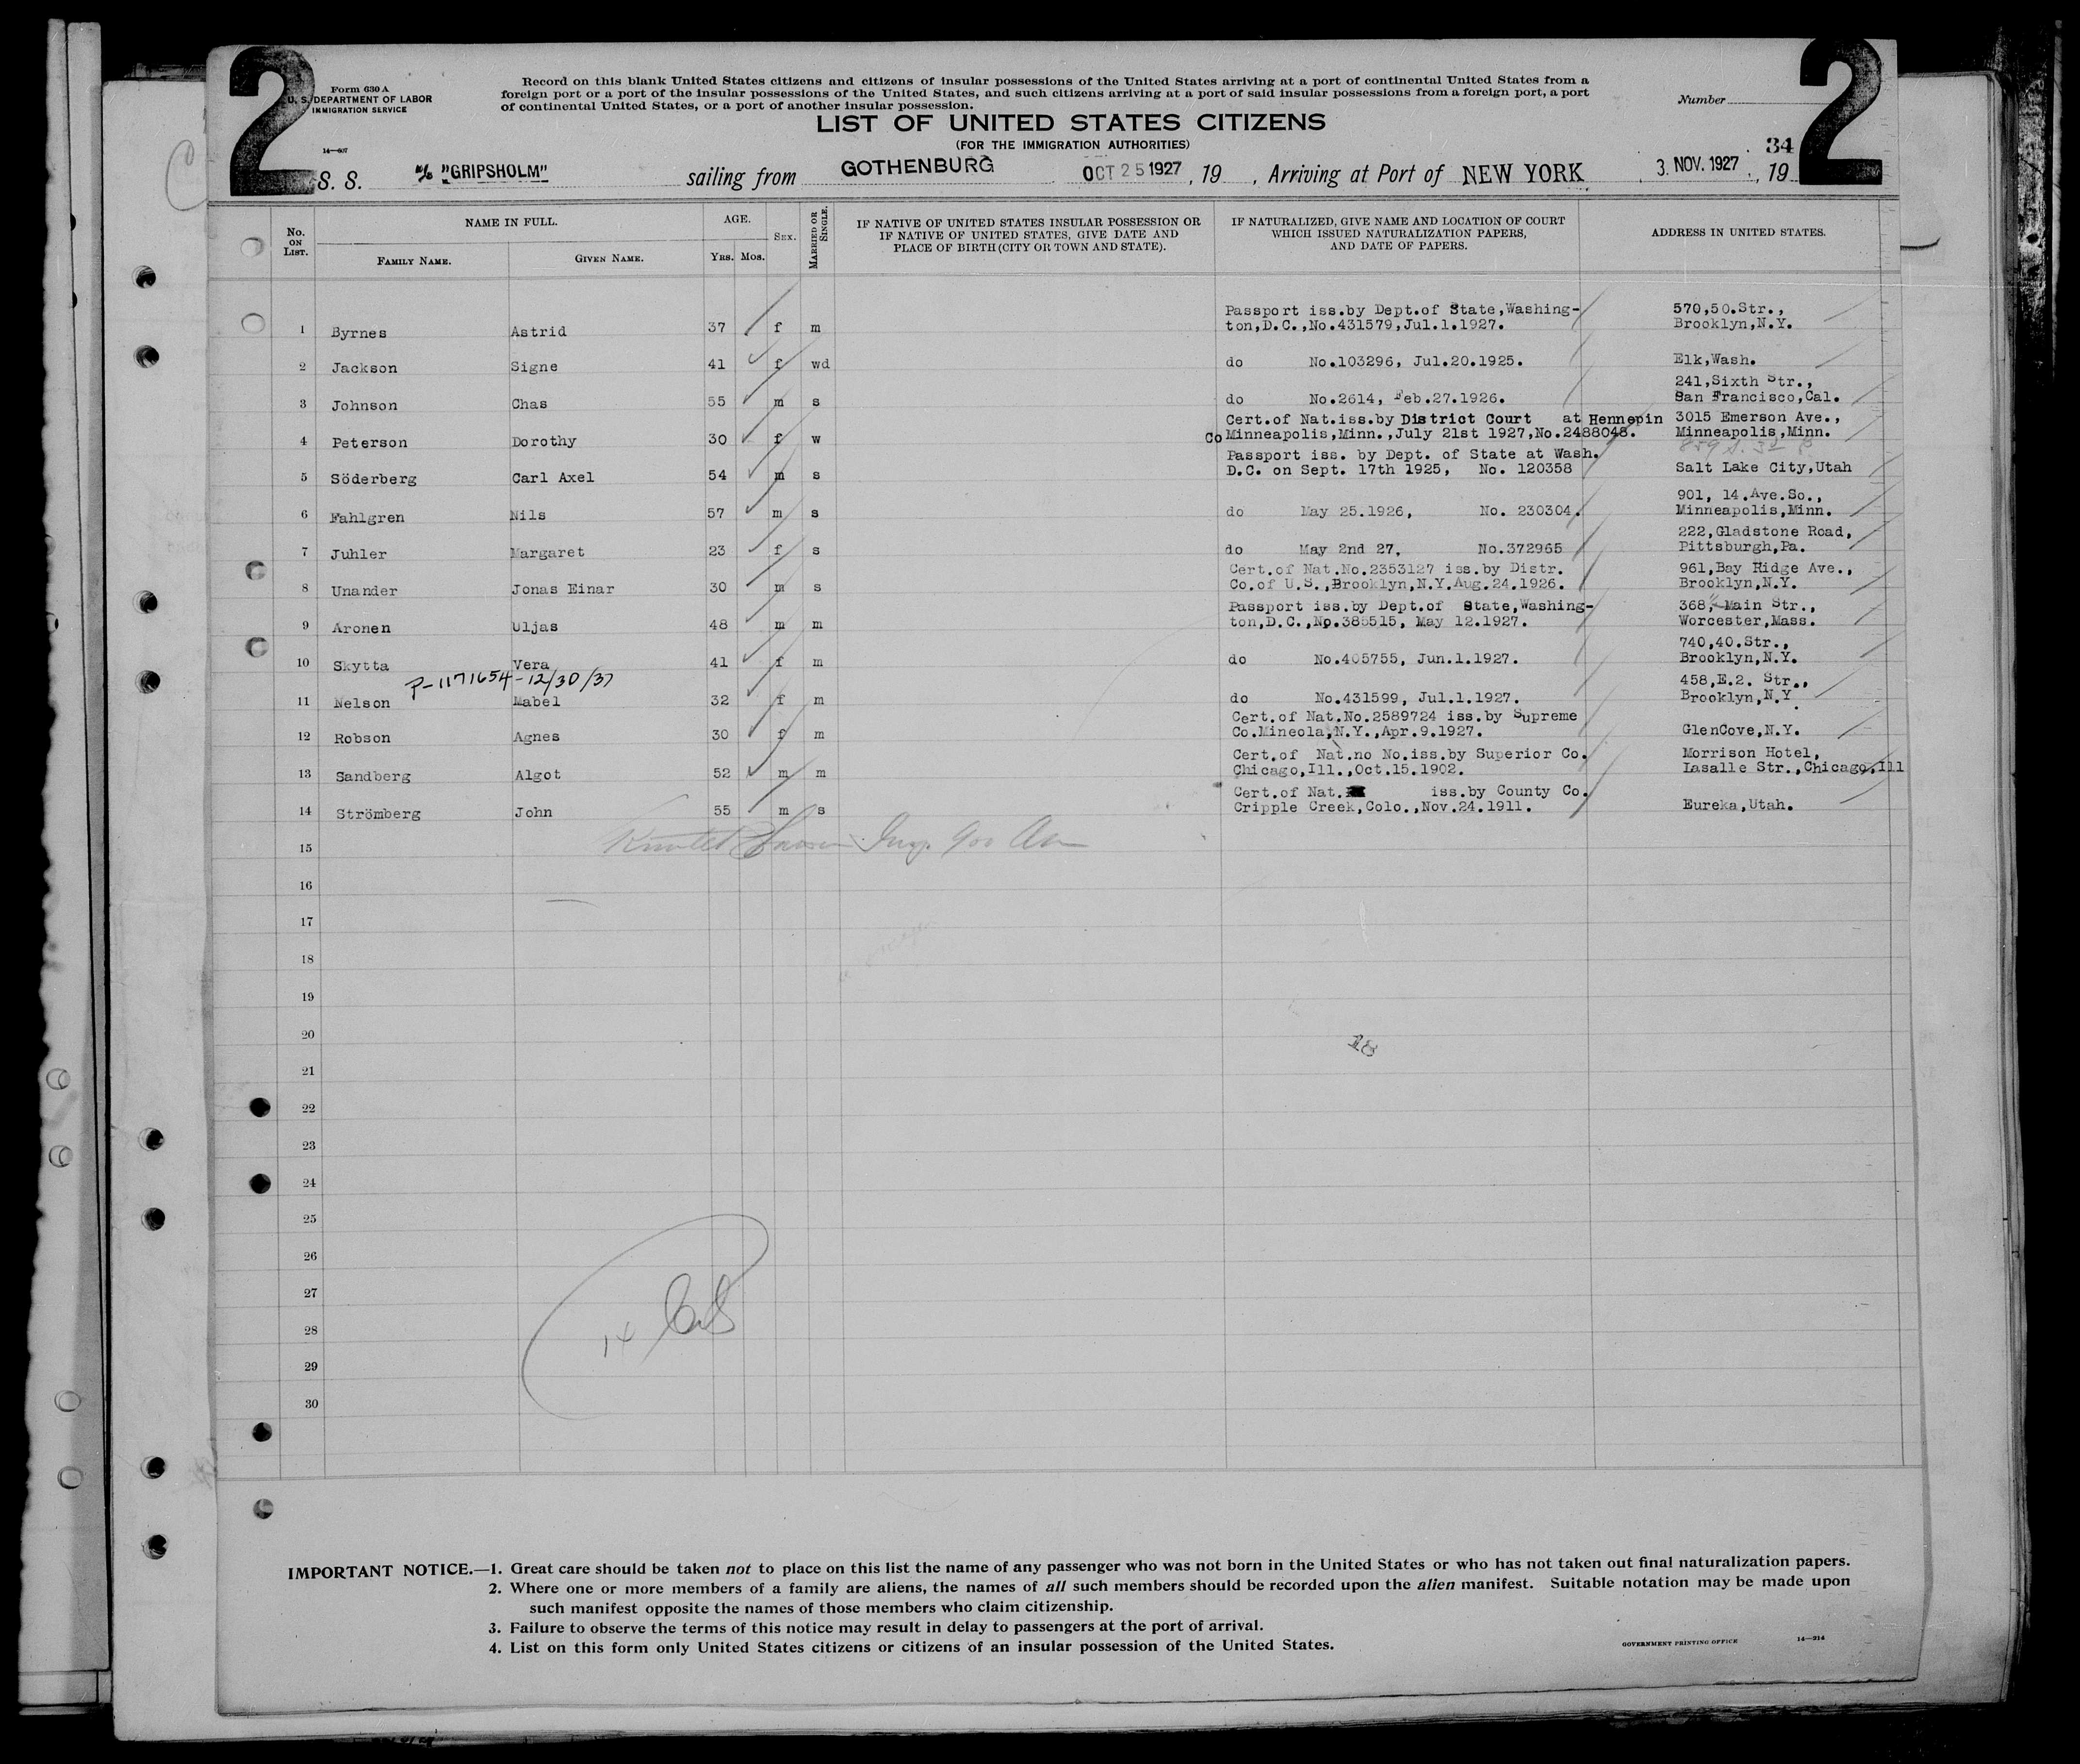 2
2
Form 630 A
U. S. DEPARTMENT OF LABOR
IMMIGRATION SERVICE
14—607
Record on this blank United States citizens and citizens of insular possessions of the United States arriving at a port of continental United States from a
foreign port or a port of the insular possessions of the United States, and such citizens arriving at a port of said insular possessions from a foreign port, a port
of continental United States, or a port of another insular possession.
Number
LIST OF UNITED STATES CITIZENS
(FOR THE IMMIGRATION AUTHORITIES)
34
S. S. "GRIPSHOLM" sailing from GOTHENBURG OCT 25 1927, 19 , Arriving at Port of NEW YORK , 3. NOV. 1927 , 19
No. ON LIST. NAME IN FULL. AGE. SEX. MARRIED OR SINGLE. IF NATIVE OF UNITED STATES INSULAR POSSESSION OR IF NATIVE OF UNITED STATES, GIVE DATE AND PLACE OF BIRTH (CITY OR TOWN AND STATE). IF NATURALIZED, GIVE NAME AND LOCATION OF COURT WHICH ISSUED NATURALIZATION PAPERS, AND DATE OF PAPERS. ADDRESS IN UNITED STATES.
FAMILY NAME. GIVEN NAME. YRS. MOS.
Passport iss.by Dept.of State,Washing- 570,50.Str.,
1 Byrnes Astrid 37 f m ton,D.C.,No.431579,Jul.1.1927. Brooklyn,N.Y.
2 Jackson Signe 41 f wd do No.103296, Jul.20.1925. Elk,Wash.
241,Sixth Str.,
3 Johnson Chas 55 m s do No.2614, Feb.27.1926. San Francisco,Cal.
Cert.of Nat.iss.by District Court at Hennepin 3015 Emerson Ave.,
4 Peterson Dorothy 30 f w Co Minneapolis,Minn.,July 21st 1927,No.2488048. Minneapolis,Minn.
Passport iss. by Dept. of State at Wash.
5 Söderberg Carl Axel 54 m s D.C. on Sept. 17th 1925, No. 120358 Salt Lake City,Utah
901, 14.Ave.So.,
6 Fahlgren Nils 57 m s do May 25.1926, No. 230304. Minneapolis,Minn.
222,Gladstone Road,
7 Juhler Margaret 23 f s do May 2nd 27, No.372965 Pittsburgh,Pa.
Cert.of Nat.No.2353127 iss.by Distr. 961,Bay Ridge Ave.,
8 Unander Jonas Einar 30 m s Co.of U.S.,Brooklyn,N.Y.Aug.24.1926. Brooklyn,N.Y.
Passport iss.by Dept.of State,Washing- 368, Main Str.,
9 Aronen Uljas 48 m m ton,D.C.,No.385515, May 12.1927. Worcester,Mass.
740,40.Str.,
10 Skytta Vera 41 f m do No.405755, Jun.1.1927. Brooklyn,N.Y.
P-1171654-12/30/37 458,E.2. Str.,
11 Nelson Mabel 32 f m do No.431599, Jul.1.1927. Brooklyn,N.Y.
Cert.of Nat.No.2589724 iss.by Supreme
12 Robson Agnes 30 f m Co.Mineola,N.Y.,Apr.9.1927. GlenCove,N.Y.
Cert.of Nat.no No.iss.by Superior Co. Morrison Hotel,
13 Sandberg Algot 52 m m Chicago,Ill.,Oct.15.1902. Lasalle Str.,Chicago,Ill
Cert.of Nat. iss.by County Co.
14 Strömberg John 55 m s Cripple Creek,Colo.,Nov.24.1911. Eureka,Utah.
15
16
17
18
19
20
18
21
22
23
24
25
26
27
28
14
29
30
IMPORTANT NOTICE.—1. Great care should be taken not to place on this list the name of any passenger who was not born in the United States or who has not taken out final naturalization papers.
2. Where one or more members of a family are aliens, the names of all such members should be recorded upon the alien manifest. Suitable notation may be made upon
such manifest opposite the names of those members who claim citizenship.
3. Failure to observe the terms of this notice may result in delay to passengers at the port of arrival.
4. List on this form only United States citizens or citizens of an insular possession of the United States.
GOVERNMENT PRINTING OFFICE 14—914